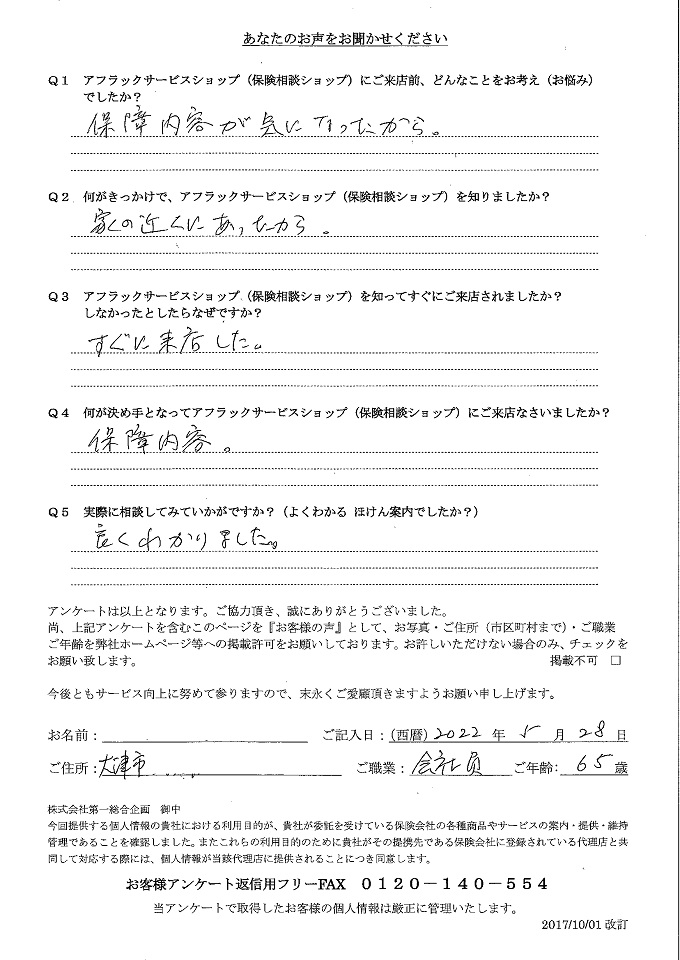 あなたのお声をお聞かせください
Q1 アフラックサービスショップ（保険相談ショップ）にご来店前、どんなことをお考え（お悩み）
でしたか？
保障内容が気になったから。
Q2 何がきっかけで、アフラックサービスショップ（保険相談ショップ）を知りましたか？
家の近くにあったから。
Q3 アフラックサービスショップ（保険相談ショップ）を知ってすぐにご来店されましたか？
しなかったとしたらなぜですか？
すぐに来店した。
Q4 何が決め手となってアフラックサービスショップ（保険相談ショップ）にご来店なさいましたか？
保障内容。
Q5 実際に相談してみていかがですか？（よくわかる ほけん案内でしたか？）
良くわかりました。
アンケートは以上となります。ご協力頂き、誠にありがとうございました。
尚、上記アンケートを含むこのページを『お客様の声』として、お写真・ご住所（市区町村まで）・ご職業
ご年齢を弊社ホームページ等への掲載許可をお願いしております。お許しいただけない場合のみ、チェックを
お願い致します。 掲載不可 □
今後ともサービス向上に努めて参りますので、末永くご愛顧頂きますようお願い申し上げます。
お名前： ご記入日：（西暦）2022 年 5 月 28 日
ご住所：大津市 ご職業：会社員 ご年齢：65 歳
株式会社第一総合企画 御中
今回提供する個人情報の貴社における利用目的が、貴社が委託を受けている保険会社の各種商品やサービスの案内・提供・維持
管理であることを確認しました。またこれらの利用目的のために貴社がその提携先である保険会社に登録されている代理店と共
同して対応する際には、個人情報が当該代理店に提供されることにつき同意します。
お客様アンケート返信用フリーFAX 0120－140－554
当アンケートで取得したお客様の個人情報は厳正に管理いたします。
2017/10/01 改訂